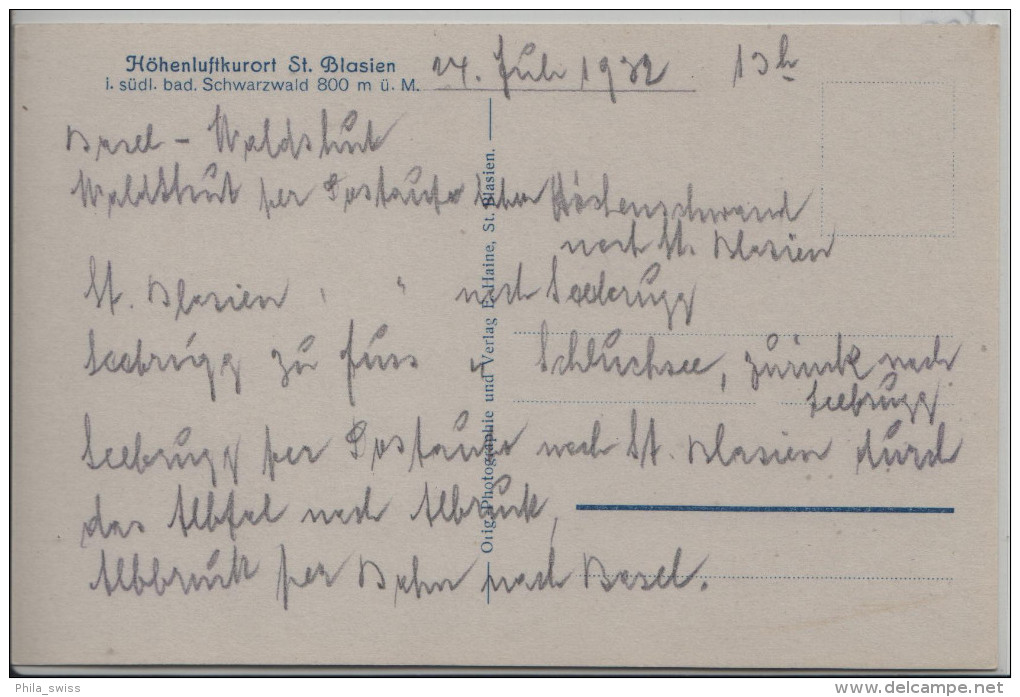 Höhenluftkurort St. Blasien
i. südl. bad. Schwarzwald 800 m ü. M.
24. Juli 1932 13h
Basel - Waldshut
Waldshut per Postauto über Höchenschwand
nach St. Blasien
St. Blasien " " nach Seebrugg
Seebrugg zu fuss n. Schluchsee, zurück nach
Seebrugg
Seebrugg per Postauto nach St. Blasien durch
das Albtal nach Albbruck,
Albbruck per Bahn nach Basel.
Orig. Photographie und Verlag E. Haine, St. Blasien.
Phila_swiss
www.delcampe.net